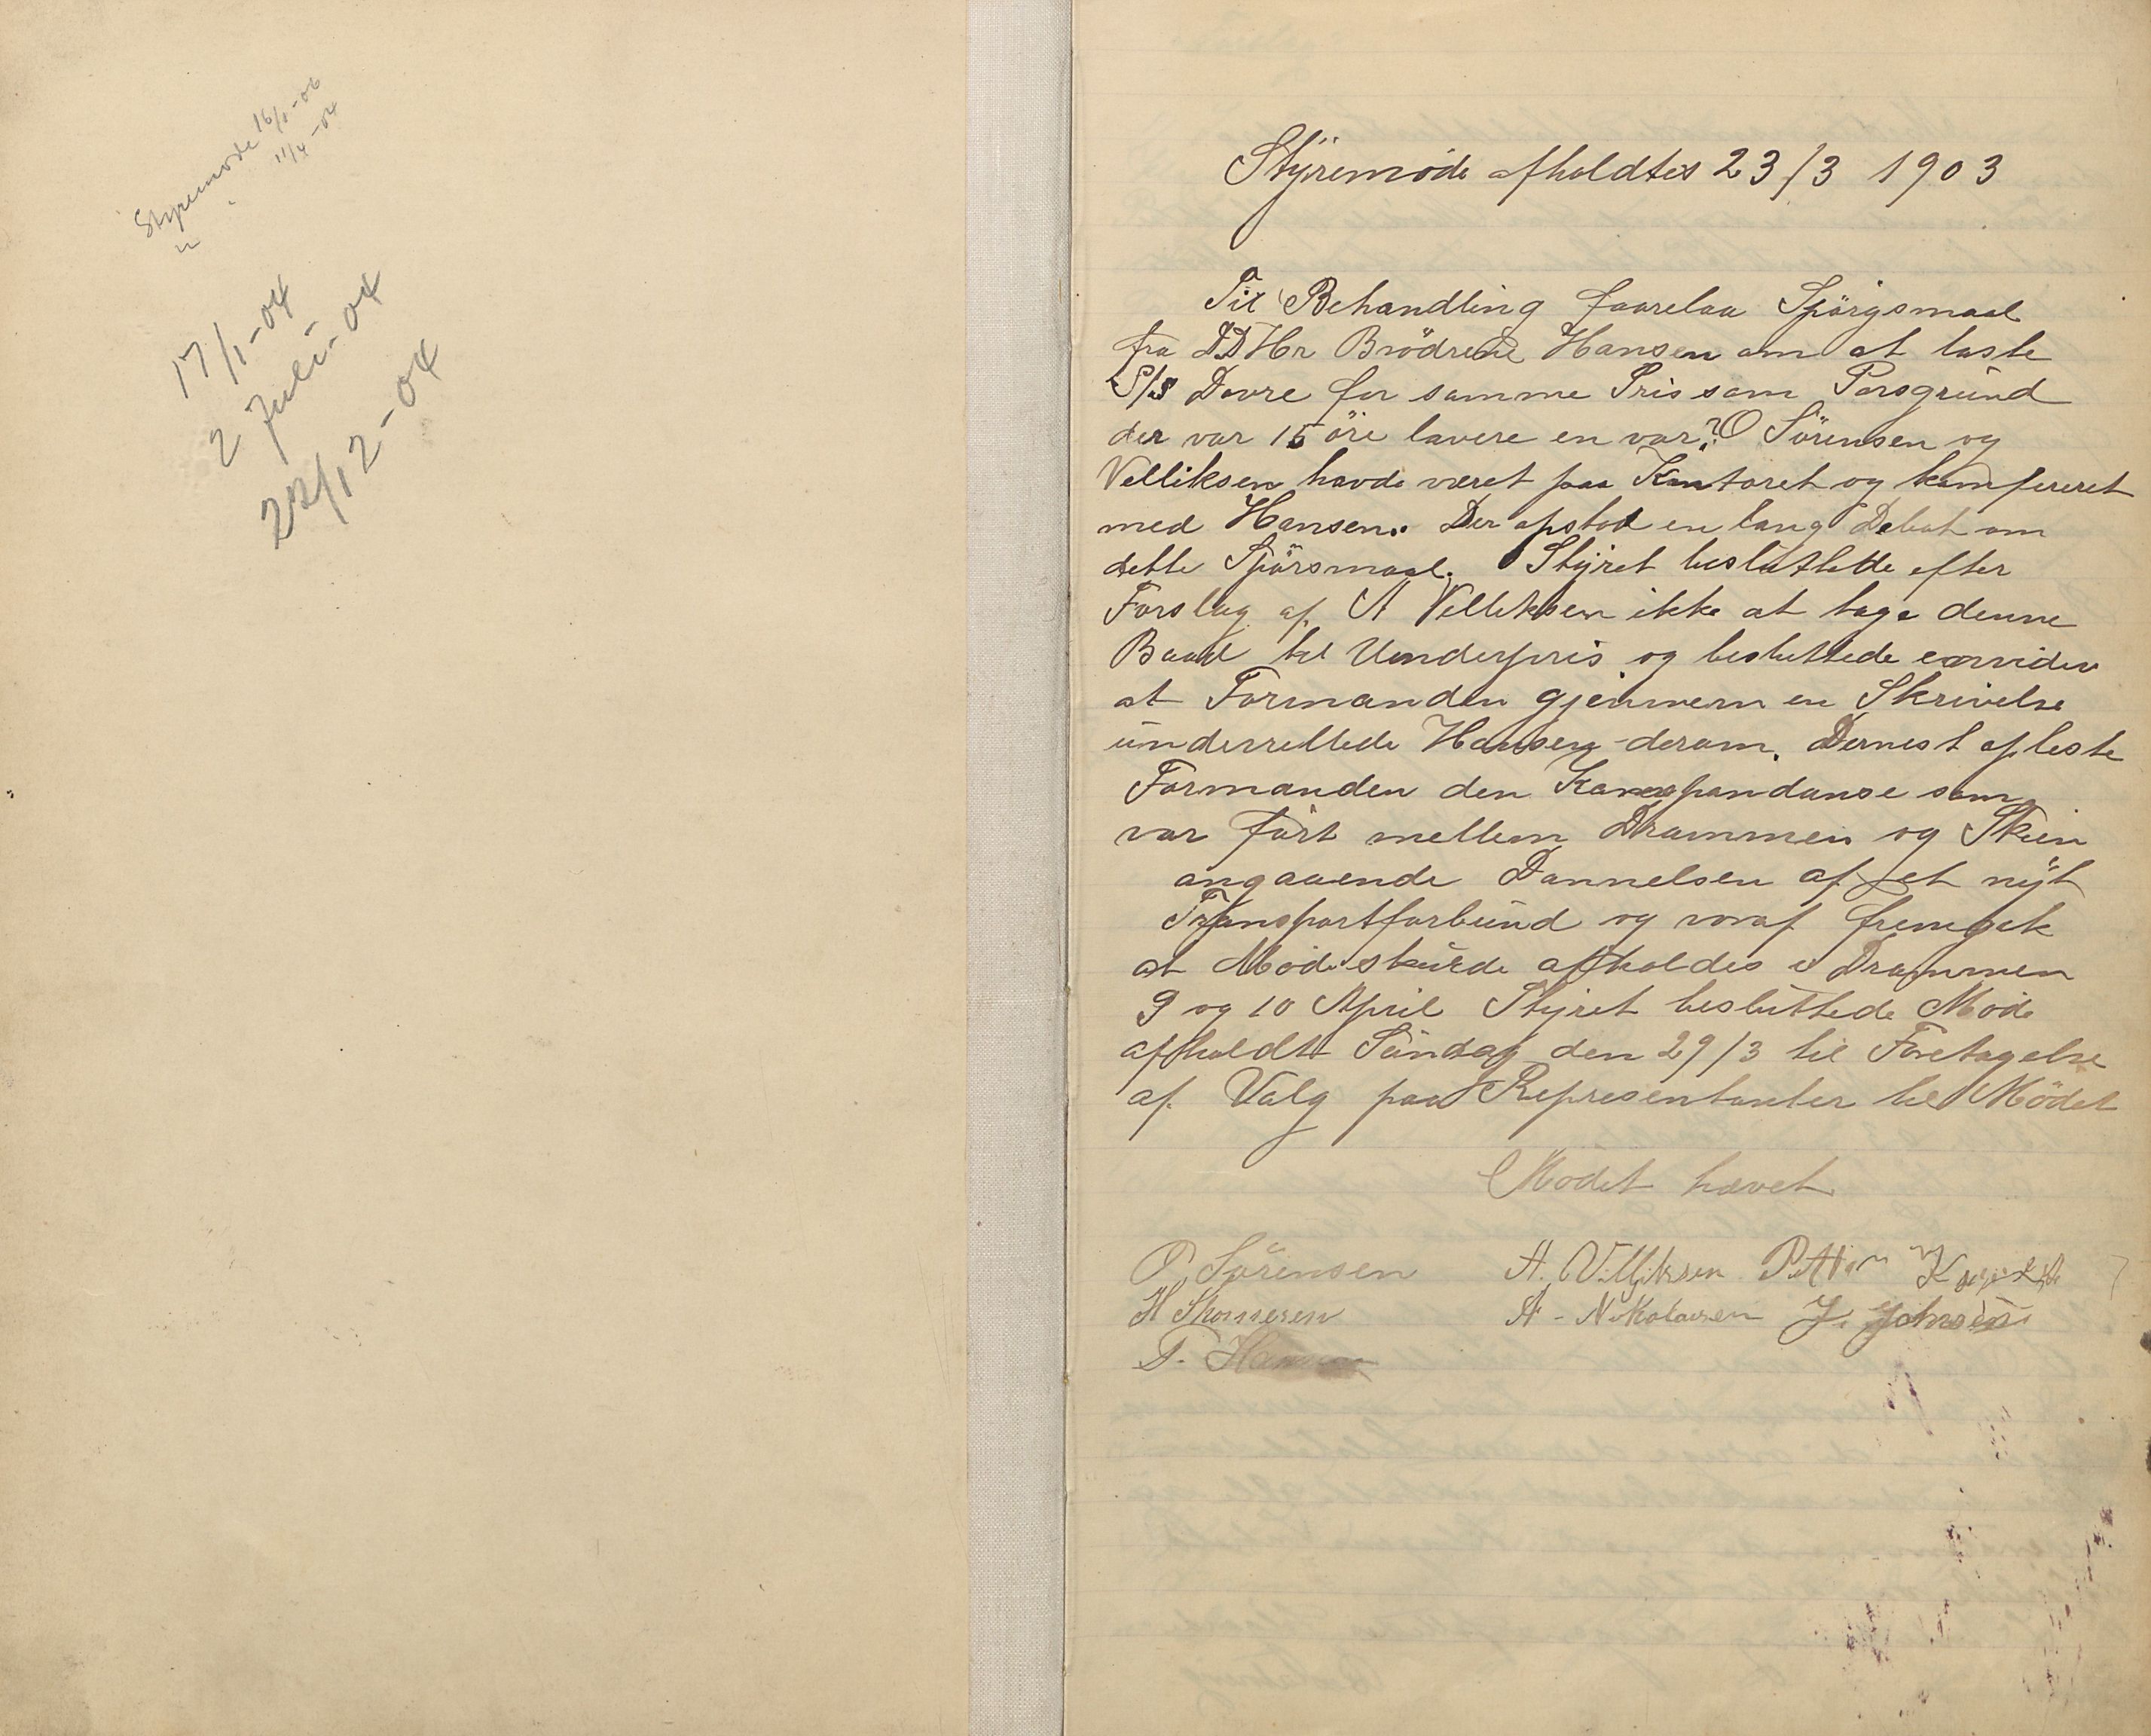 Styremøde 16/1-06
" " 11/4-04
17/1-04
2 Juli-04
22/12-04
Styremöde afholdtes 23/3 1903
Til Behandling foorelaa Spörgsmaal
fra DD Hr Brödrene Hansen om at laste
S/S Dovre for samme Pris som Porsgrund
der var 15 öre lavere en vor? O Sörensen og
Velliksen havde været paa Kontoret og komfereret
med Hansen. Der opstod en lang Debat om
dette Spörsmaal. Styret besluttede efter
Forslag af A Velliksen ikke at tage denne
Baad til Underpris og besluttede
at Formanden gjennem en Skrivelse
underrettede Hansen derom. Dernest opleste
Formanden den Korespondanse som
var fört mellem Drammen og Skien
angaaende Dannelsen af et nyt
Transportforbund og voraf fremgik
at Möde skulde afholdes i Drammen
9 og 10 April Styret besluttede Möde
afholdt Söndag den 29/3 til Foretagelse
af Valg paa Representanter til Mödet
Mödet hævet
O Sörensen A. Villiksen
H Skomesen A - Nikolaisen J. Johnsen
T. Hansen